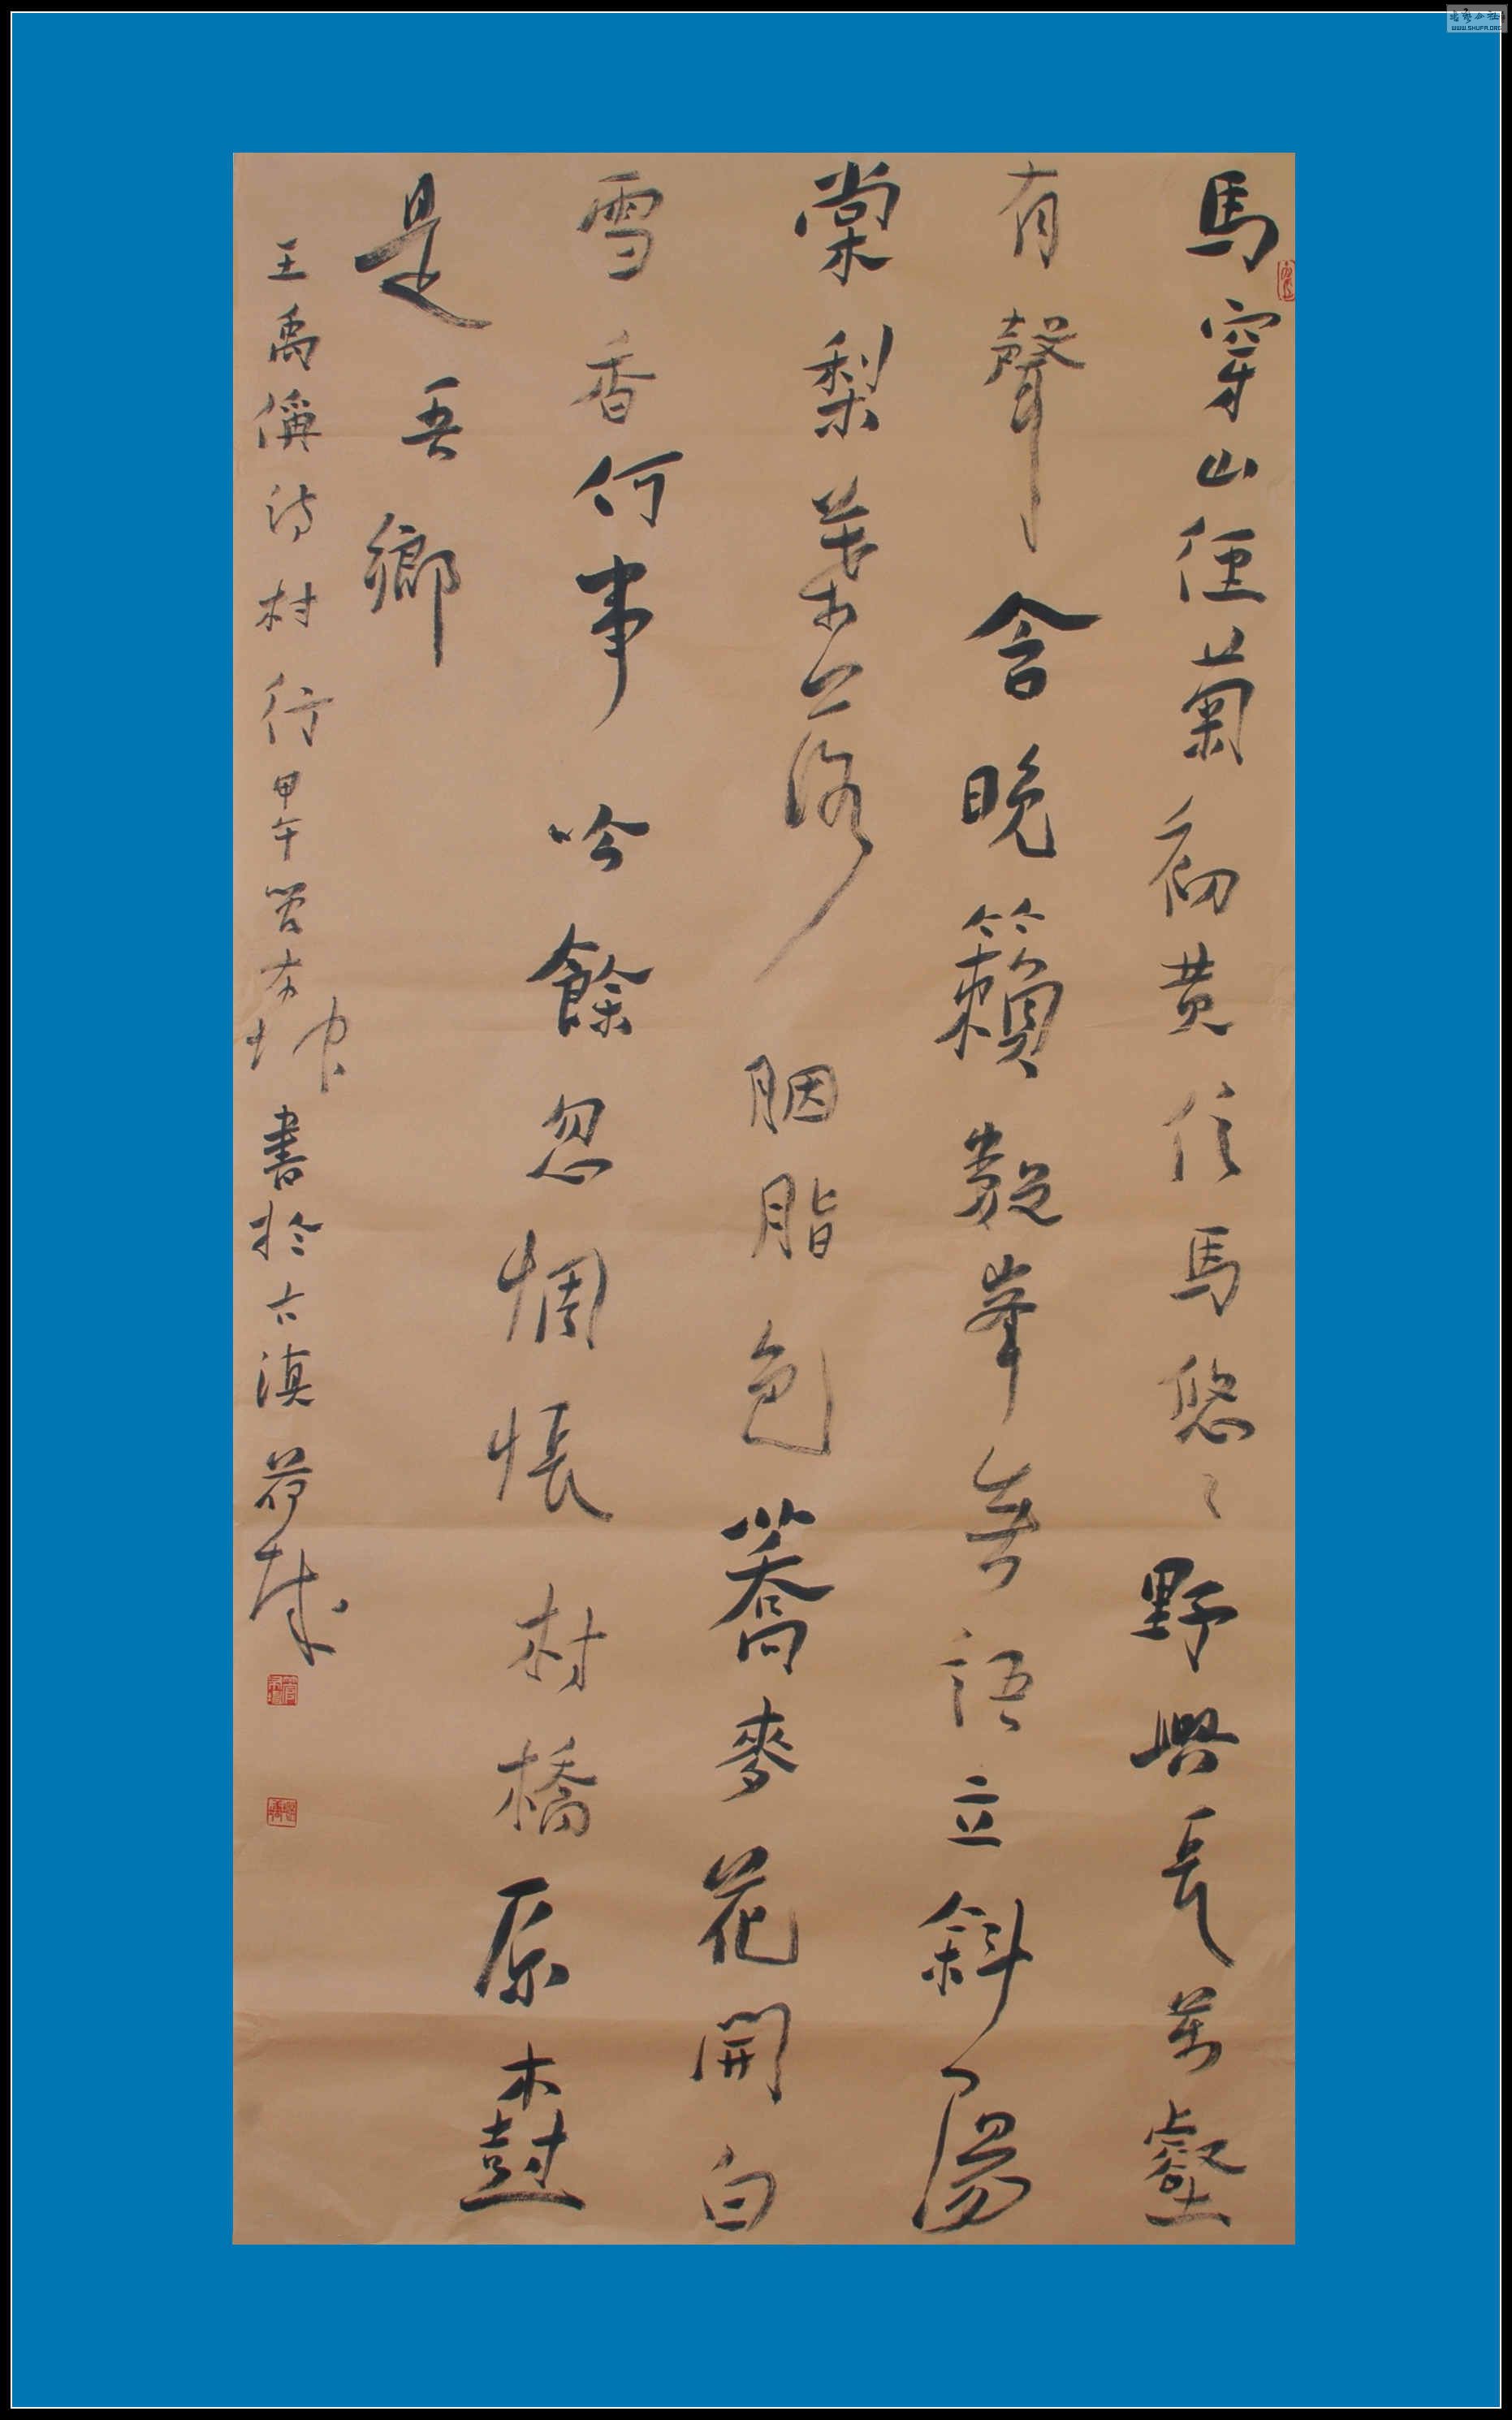 馬穿山徑菊初黃信馬悠々野興長萬壑
有聲含晚籟數峯無語立斜陽
棠梨葉落胭脂色蕎麥花開白
雪香何事吟餘忽惆悵村橋原樹
是吾鄉
王禹偁詩村行甲午管本坤書於古滇荷城
WWW.SHUFA.ORG